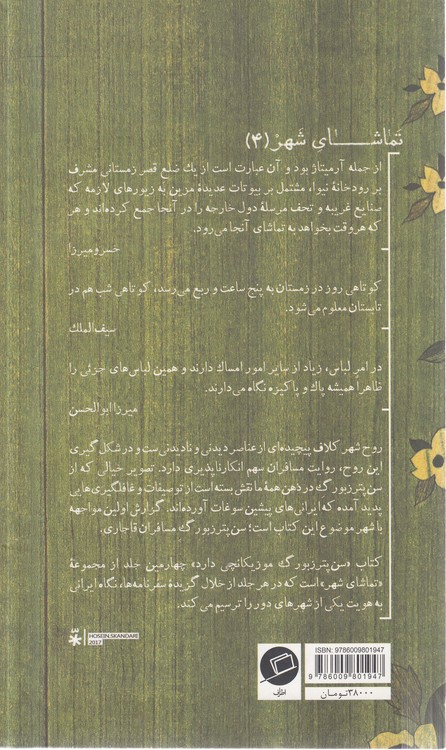 تماشای شهر (۴)
از جمله آرمیتاژ بود و آن عبارت است از یك ضلع قصر زمستانی مشرف
بر رودخانهٔ نیوا، مشتمل بر بیوتات عدیدهٔ مزین به زیورهای لازمه که
صنایع غریبه و تحف مرسلهٔ دول خارجه را در آنجا جمع کرده‌اند و هر
که هر وقت بخواهد به تماشای آنجا می‌رود.
خسرو میرزا
کوتاهی روز در زمستان به پنج ساعت و ربع می‌رسد، کوتاهی شب هم در
تابستان معلوم می‌شود.
سیف‌الملك
در امر لباس، زیاد از سایر امور امساك دارند و همین لباس‌های جزئی را
ظاهرا همیشه پاك و پاکیزه نگاه می‌دارند.
میرزا ابوالحسن
روح شهر کلاف پیچیده‌ای از عناصر دیدنی و نادیدنی‌ست و در شکل‌گیری
این روح، روایت مسافران سهم انکارناپذیری دارد. تصویر خیالی که از
سن‌پترزبورگ در ذهن همهٔ ما نقش بسته است از توصیفات و غافلگیری‌هایی
پدید آمده که ایرانی‌های پیشین سوغات آورده‌اند. گزارش اولین مواجهه
با شهر موضوع این کتاب است؛ سن‌پترزبورگ مسافران قاجاری.
کتاب «سن‌پترزبورگ موزیکانچی دارد» چهارمین جلد از مجموعهٔ
«تماشای شهر» است که در هر جلد از خلال گزیدهٔ سفرنامه‌ها، نگاه ایرانی
به هویت یکی از شهرهای دور را ترسیم می‌کند.
HOSEIN.SKANDARI
2017
ISBN: 9786009801947
9 786009 801947
۳۸۰۰۰ تومــان
اطراف